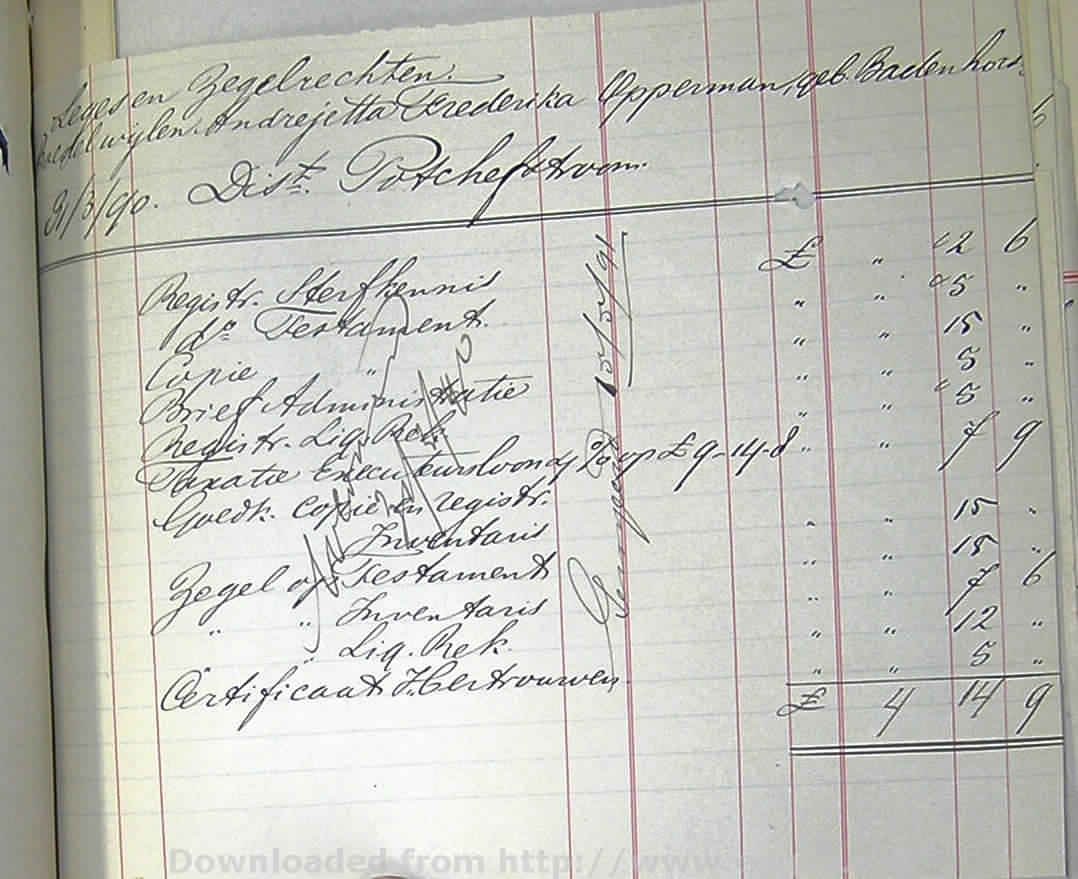 Leges en Zegelrechten.
boedel wijlen Andrejetta Frederika Opperman, geb. Badenhors
21/3/90. Dist. Potchefstroom.
Registr. Sterfkennis £ " 2 6
do Testament. " " 5 "
Copie " " " 15 "
Brief Administratie " " 5 "
Registr. Liq. Rek. " " 5 "
Taxatie Executeursloon op £9-14-8 " " 7 9
Goedk. Copie en registr.
Inventaris " " 15 "
Zegel op Testament " " 15 "
" " Inventaris " " 7 6
" Liq. Rek. " " 12 "
Certificaat H. " " 5 "
£ 4 14 9
15/5/91
Downloaded from http://www